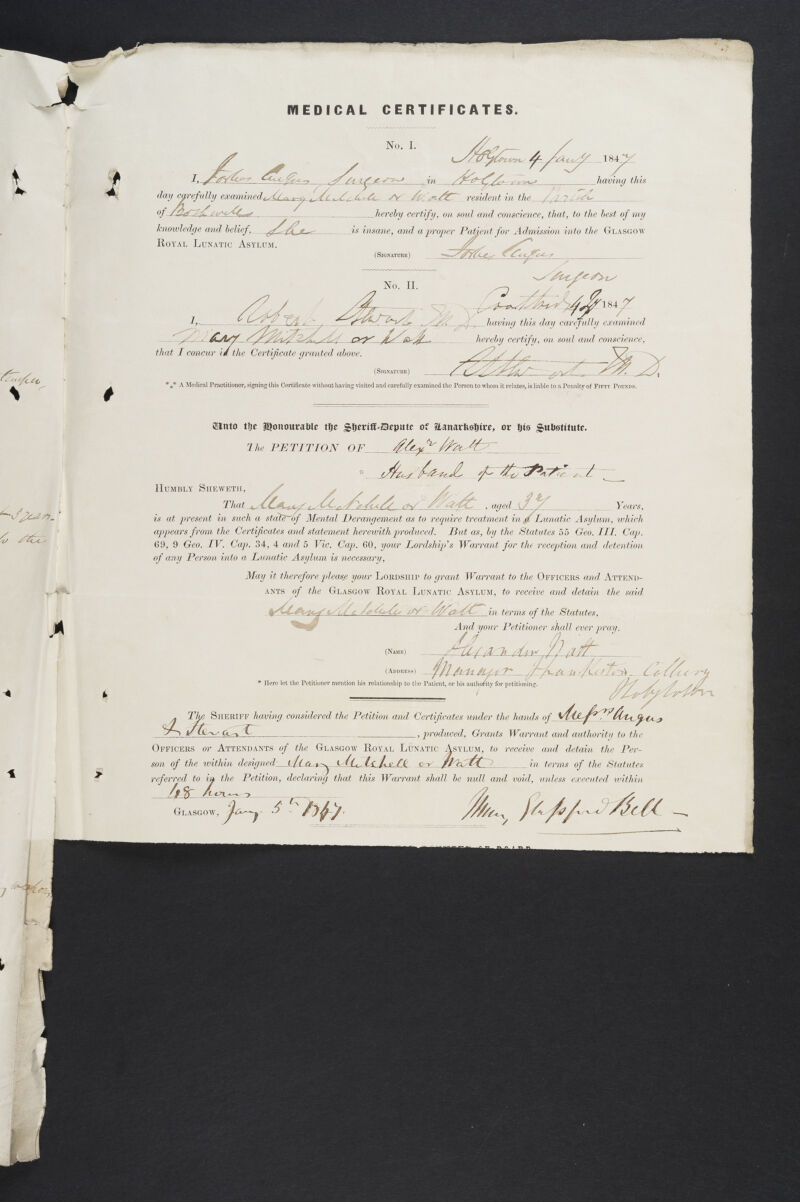 MEDICAL CERTIFICATES.
No. I.
Holytown 4 Jany 1847
I, Forbes Angus Surgeon in Holytown having this
day carefully examined Mary Mitchell or Watt resident in the Parish
of Bothwell hereby certify, on soul and conscience, that, to the best of my
knowledge and belief, She is insane, and a proper Patient for Admission into the GLASGOW
ROYAL LUNATIC ASYLUM.
(SIGNATURE) Forbes Angus
Surgeon
No. II.
Coatbridge 4 Jy 1847
I, Robert Stewart M.D. having this day carefully examined
Mary Mitchell or Watt hereby certify, on soul and conscience,
that I concur in the Certificate granted above.
(SIGNATURE) Rt Stewart M.D.
*⁎* A Medical Practitioner, signing this Certificate without having visited and carefully examined the Person to whom it relates, is liable to a Penalty of FIFTY POUNDS.
Unto the Honourable the Sheriff-Depute of Lanarkshire, or his Substitute.
The PETITION OF Alexr Watt
* Husband of the Patient
HUMBLY SHEWETH,
That Mary Mitchell or Watt, aged 37 Years,
is at present in such a state of Mental Derangement as to require treatment in a Lunatic Asylum, which
appears from the Certificates and statement herewith produced. But as, by the Statutes 55 Geo. III. Cap.
69, 9 Geo. IV. Cap. 34, 4 and 5 Vic. Cap. 60, your Lordship's Warrant for the reception and detention
of any Person into a Lunatic Asylum is necessary,
May it therefore please your LORDSHIP to grant Warrant to the OFFICERS and ATTEND-
ANTS of the GLASGOW ROYAL LUNATIC ASYLUM, to receive and detain the said
Mary Mitchell or Watt in terms of the Statutes,
And your Petitioner shall ever pray.
(NAME) Alexander Watt
(ADDRESS) Manager Thankerton Colliery
Holytown
* Here let the Petitioner mention his relationship to the Patient, or his authority for petitioning.
The SHERIFF having considered the Petition and Certificates under the hands of Messrs Angus
& Stewart, produced, Grants Warrant and authority to the
OFFICERS or ATTENDANTS of the GLASGOW ROYAL LUNATIC ASYLUM, to receive and detain the Per-
son of the within designed Mary Mitchell or Watt in terms of the Statutes
referred to in the Petition, declaring that this Warrant shall be null and void, unless executed within
48 hours
GLASGOW, Jany 5th 1847. Glassford Bell
to the